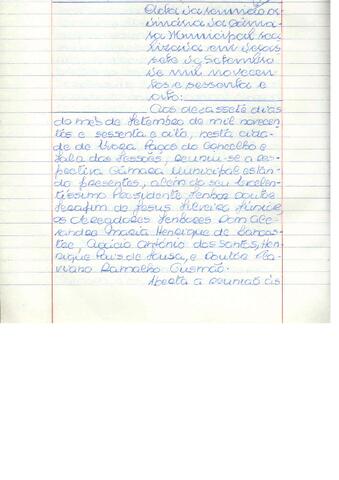 Acta da reunião or-
dinária da Câma-
ra Municipal rea
lizada em dezas
sete de Setembro
de mil novecen
tos e sessenta e
oito:
Aos dezassete dias
do mês de Setembro de mil novecen
tos e sessenta e oito, nesta cida-
de de Paços do Concelho e
Sala das Sessões, reuniu-se a res-
pectiva Câmara Municipal estan-
do presentes, além do seu Excelen-
tíssimo Presidente Senhor Doutor
Serafim de Jesus Silveira Júnior
os Vereadores Senhores Dom Ale-
xandre Maria Henrique de Lancas-
tre, António dos Santos, Hen-
rique Pais de Sousa, e Doutor
Ramalho Gusmão.
Aberta a reunião às